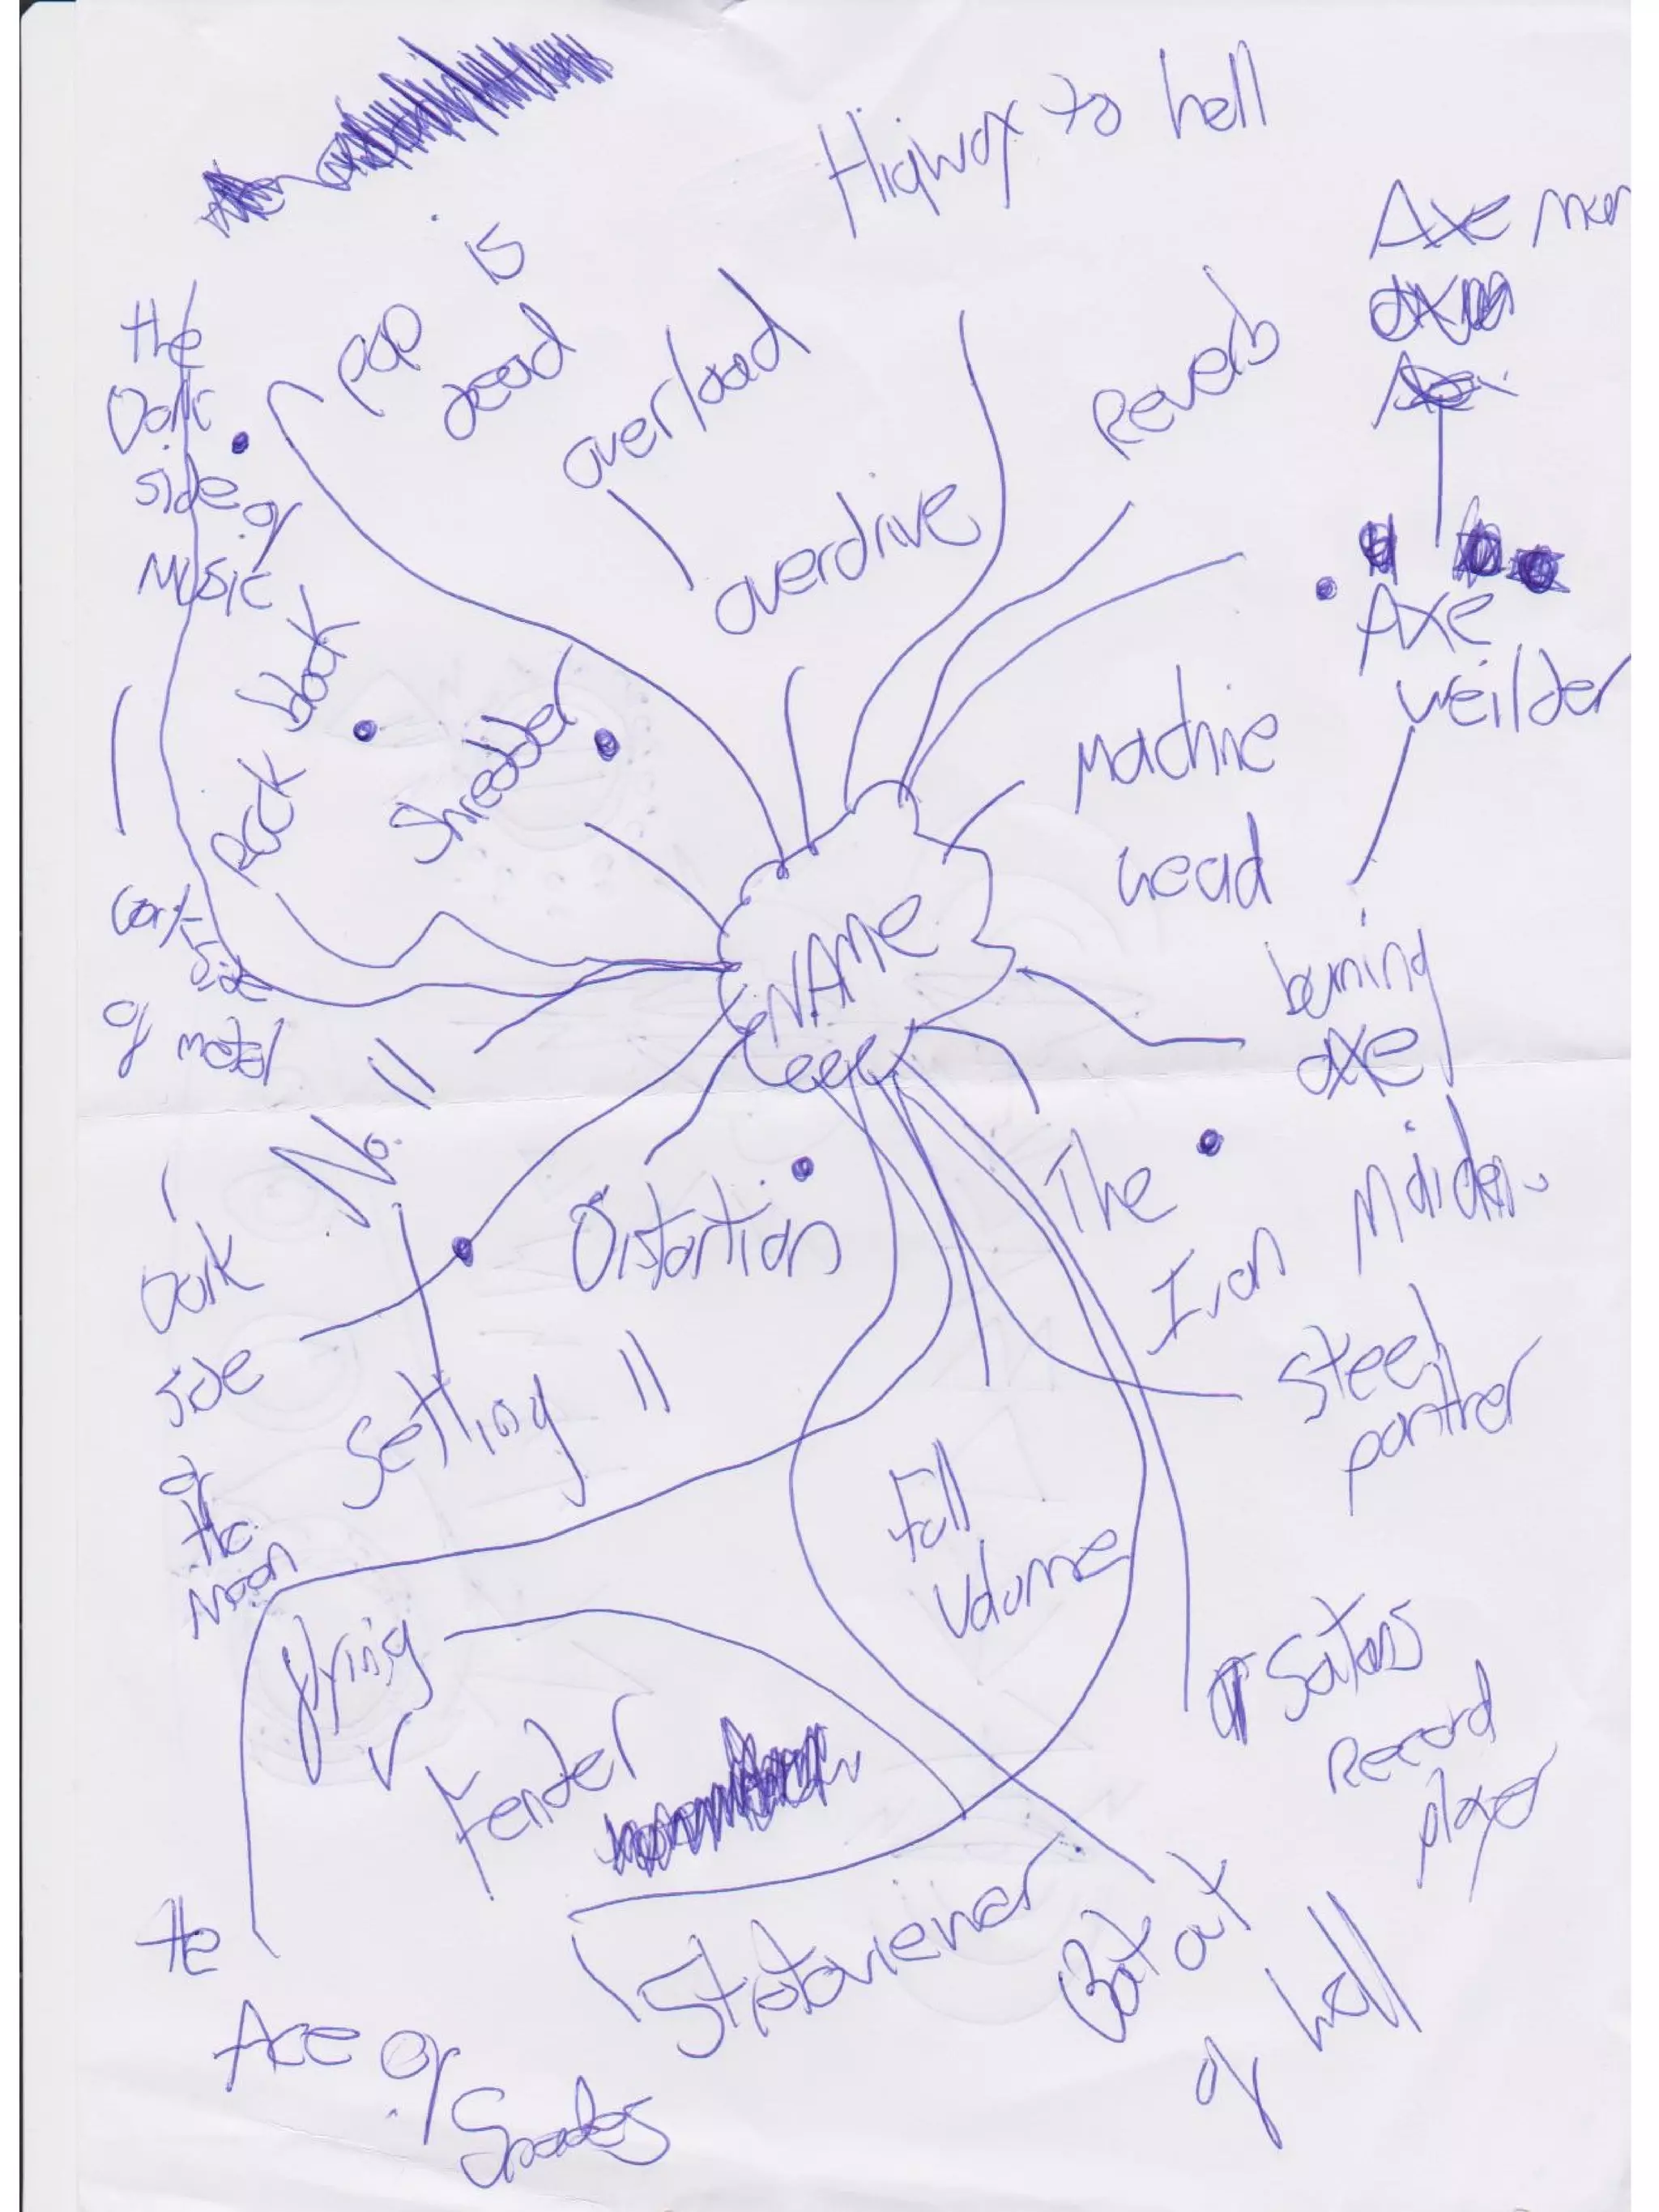 Higwax to hell
Axe men
pop is
dead
overload
overdrive
Reverb
the
Dark
side of
MUSIC
Axe
weilder
Rock block
Shredder
Machine
head
NAME
burning
axe
side
of metal
No. 11
Distortion
The
Iron Maiden
Dark
side
of
the
Moon
Setting 11
Steel
panther
Full
Volume
flying
V
Fender
Satans
Record
player
Bat out
of hell
the
Ace of
Spades